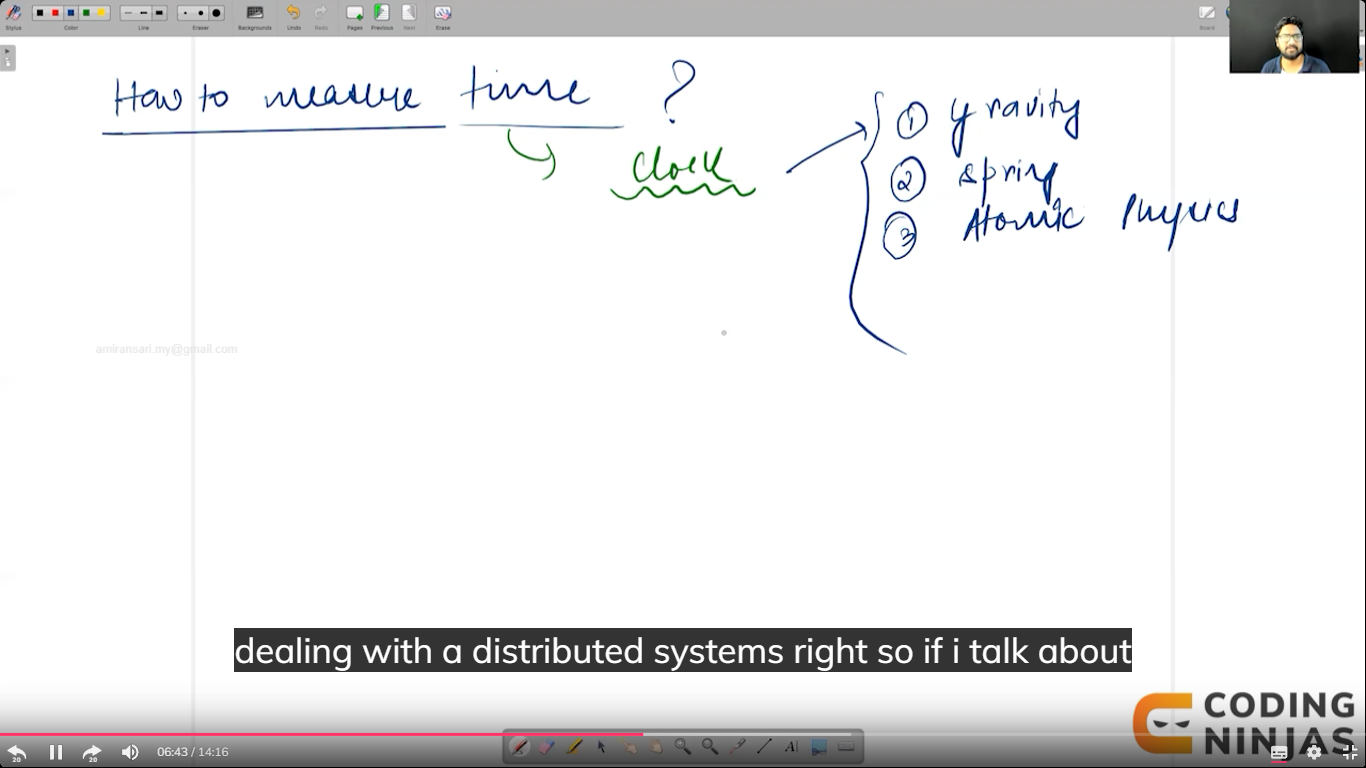 Stylus Color Line Eraser Backgrounds Undo Redo Pages Previous Next Erase Board
How to measure time ?
Clock
1 gravity
2 spring
3 Atomic Physics
amiransari.my@gmail.com
dealing with a distributed systems right so if i talk about
CODING
NINJAS
20 20 06:43 / 14:16